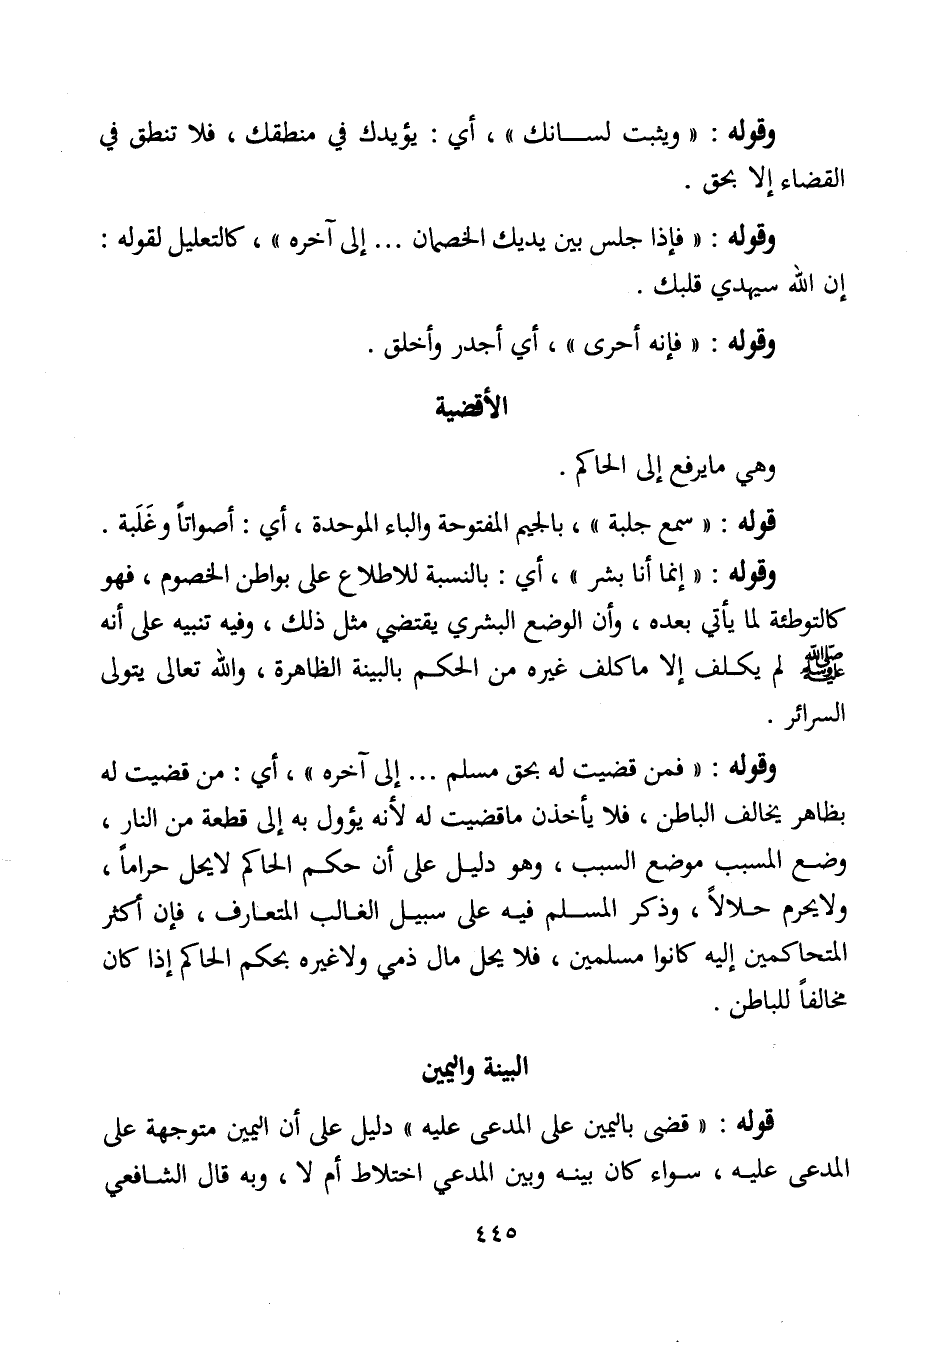 وقوله : « ويثبت لسـانك » ، أي : يؤيدك في منطقك ، فلا تنطق في
القضاء إلا بحق .
وقوله : « فإذا جلس بين يديك الخصمان ... إلى آخره » ، كالتعليل لقوله :
إن الله سيهدي قلبك .
وقوله : « فإنه أحرى » ، أي أجدر وأخلق .
الأقضية
وهي مايرفع إلى الحاكم .
قوله : « سمع جلبة » ، بالجيم المفتوحة والباء الموحدة ، أي : أصواتاً وغَلَبة .
وقوله : « إنما أنا بشر » ، أي : بالنسبة للاطلاع على بواطن الخصوم ، فهو
كالتوطئة لما يأتي بعده ، وأن الوضع البشري يقتضي مثل ذلك ، وفيه تنبيه على أنه
ﷺ لم يكلف إلا ماكلف غيره من الحكم بالبينة الظاهرة ، والله تعالى يتولى
السرائر .
وقوله : « فمن قضيت له بحق مسلم ... إلى آخره » ، أي : من قضيت له
بظاهر يخالف الباطن ، فلا يأخذن ماقضيت له لأنه يؤول به إلى قطعة من النار ،
وضع المسبب موضع السبب ، وهو دليل على أن حكم الحاكم لايحل حراماً ،
ولايحرم حلالاً ، وذكر المسلم فيه على سبيل الغالب المتعارف ، فإن أكثر
المتحاكمين إليه كانوا مسلمين ، فلا يحل مال ذمي ولاغيره بحكم الحاكم إذا كان
مخالفاً للباطن .
البينة واليمين
قوله : « قضى باليمين على المدعى عليه » دليل على أن اليمين متوجهة على
المدعى عليه ، سواء كان بينه وبين المدعي اختلاط أم لا ، وبه قال الشافعي
٤٤٥